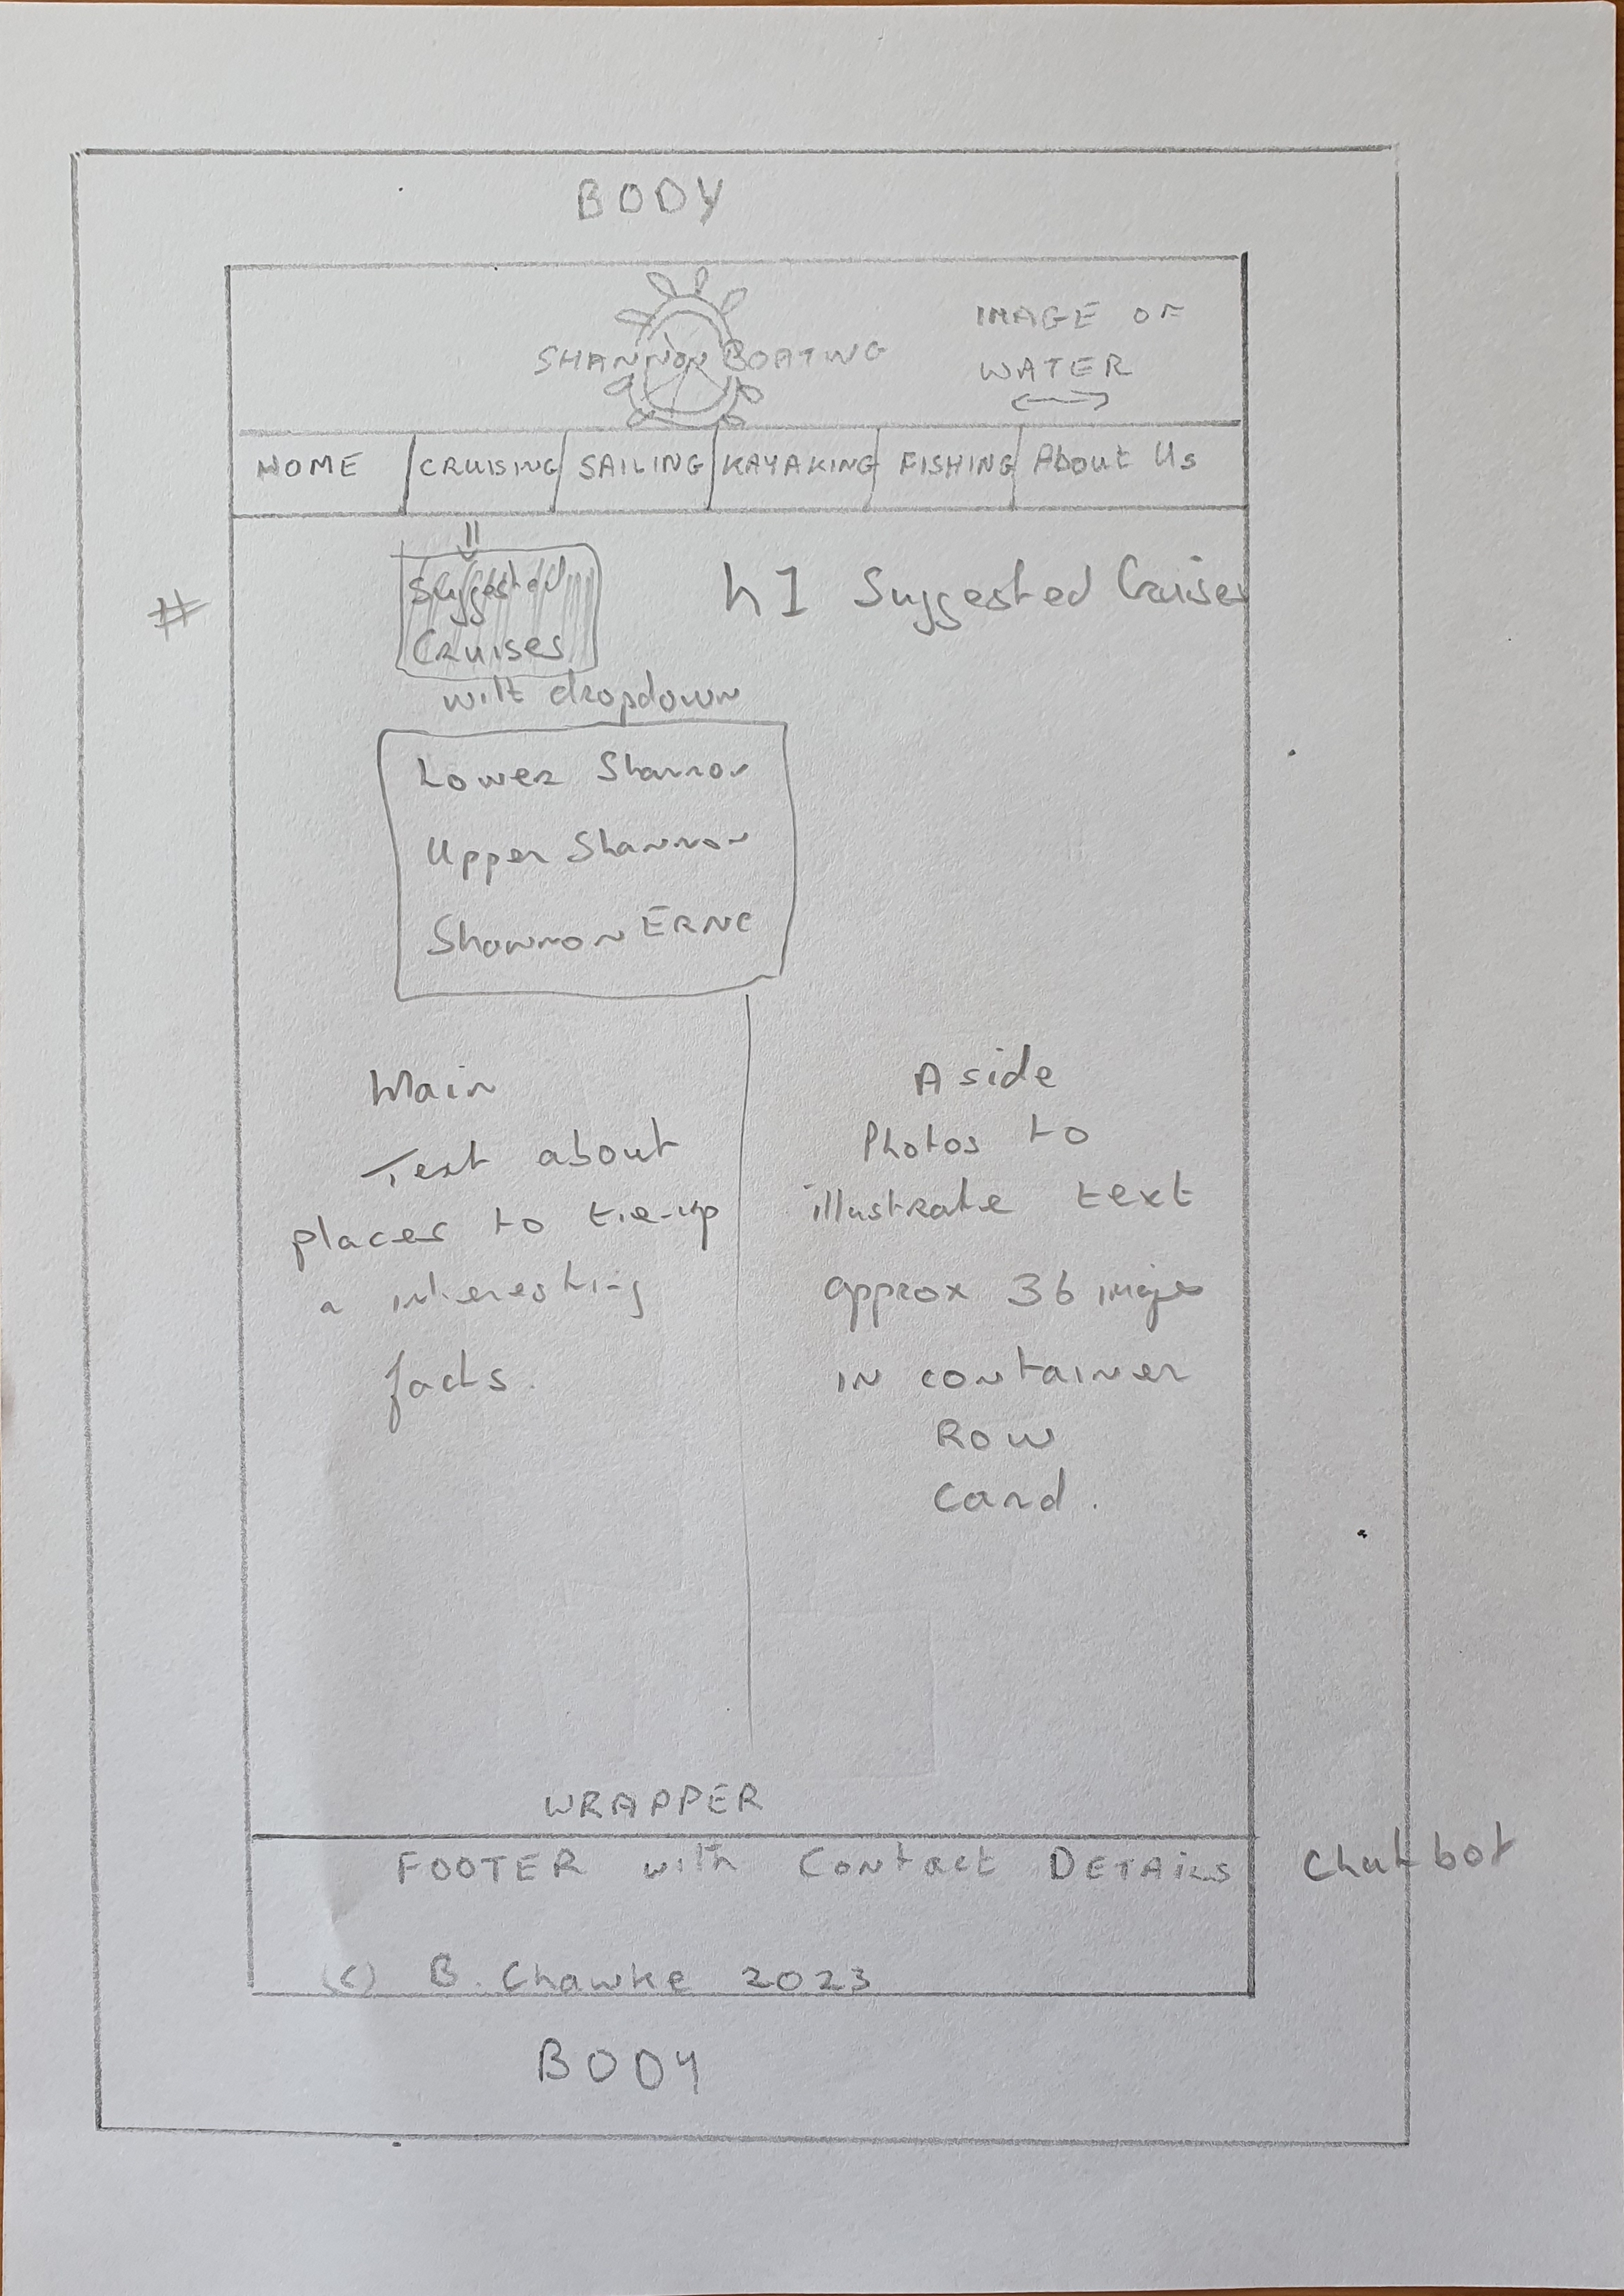 BODY
SHANNON BOATING
IMAGE OF
WATER
HOME
CRUISING
SAILING
KAYAKING
FISHING
About Us
#
Suggested
Cruises
with dropdown
h1 Suggested Cruises
Lower Shannon
Upper Shannon
Shannon ERNE
Main
Text about
places to tie-up
interesting
facts.
Aside
Photos to
illustrate text
approx 36 images
in container
Row
Card.
WRAPPER
FOOTER with Contact DETAILS
Chatbot
(c) B. Chawke 2023
BODY